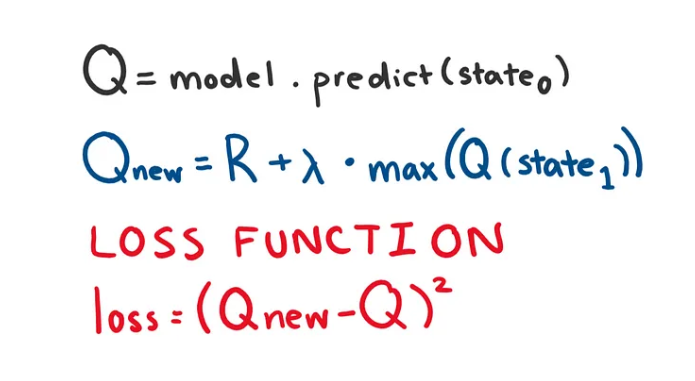 Q = model.predict(state₀)
Qnew = R + λ · max(Q(state₁))
LOSS FUNCTION
loss = (Qnew - Q)²